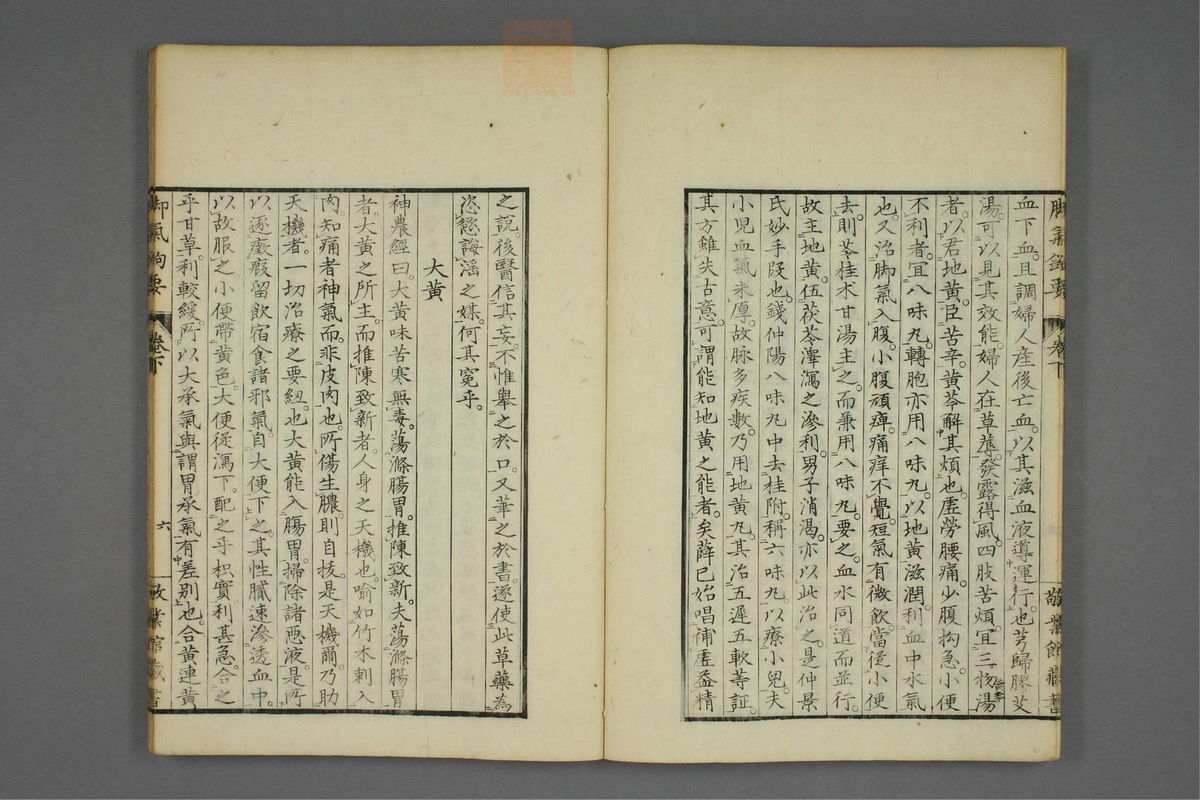 脚氣鉤要 卷下 敬業館藏書
血下血且調婦人産後亡血以其滋血液導運行也芎歸膠艾
湯可以見其效能婦人在草蓐發露得風四肢苦煩宜三物湯
者以君地黄臣苦辛黄芩解其煩也虛勞腰痛少腹拘急小便
不利者宜八味丸轉胞亦用八味丸以地黄滋潤利血中水氣
也又治脚氣入腹小腹頑痺痛痒不覺短氣有微飲當從小便
去則苓桂朮甘湯主之而兼用八味丸要之血水同道而並行
故主地黄伍茯苓澤瀉之滲利男子消渴亦以此治之是仲景
氏妙手段也錢仲陽八味丸中去桂附稱六味丸以療小兒夫
小兒血氣未厚故脉多疾數乃用地黄丸其治五遲五軟等証
其方雖失古意可謂能知地黄之能者矣薛已始唱補虛益精
之說後醫信其妄不惟舉之於口又筆之於書遂使此草藥為
恣慾誨淫之媒何其寃乎
大黄
神農經曰大黄味苦寒無毒蕩滌腸胃推陳致新夫蕩滌腸胃
者大黄之所主而推陳致新者人身之天機也喻如竹木刺入
肉知痛者神氣而非皮肉也所傷生膿則自拔是天機爾乃助
天機者一切治療之要紐也大黄能入腸胃掃除諸惡液是所
以逐癥瘕留飲宿食諸邪氣自大便下之其性膩速滲透血中
以故服之小便帶黄色大便從瀉下配之乎枳實利甚急合之
乎甘草利較緩所以大承氣與謂胃承氣有差別也合黄連黄
脚氣鉤要 卷下 六 敬業館藏書